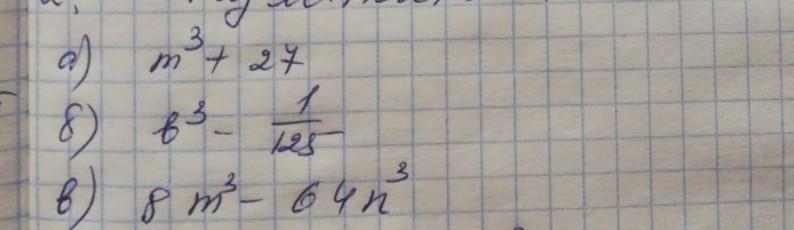 а) m³ + 27
б) b³ - 1/125
в) 8 m³ - 64n³